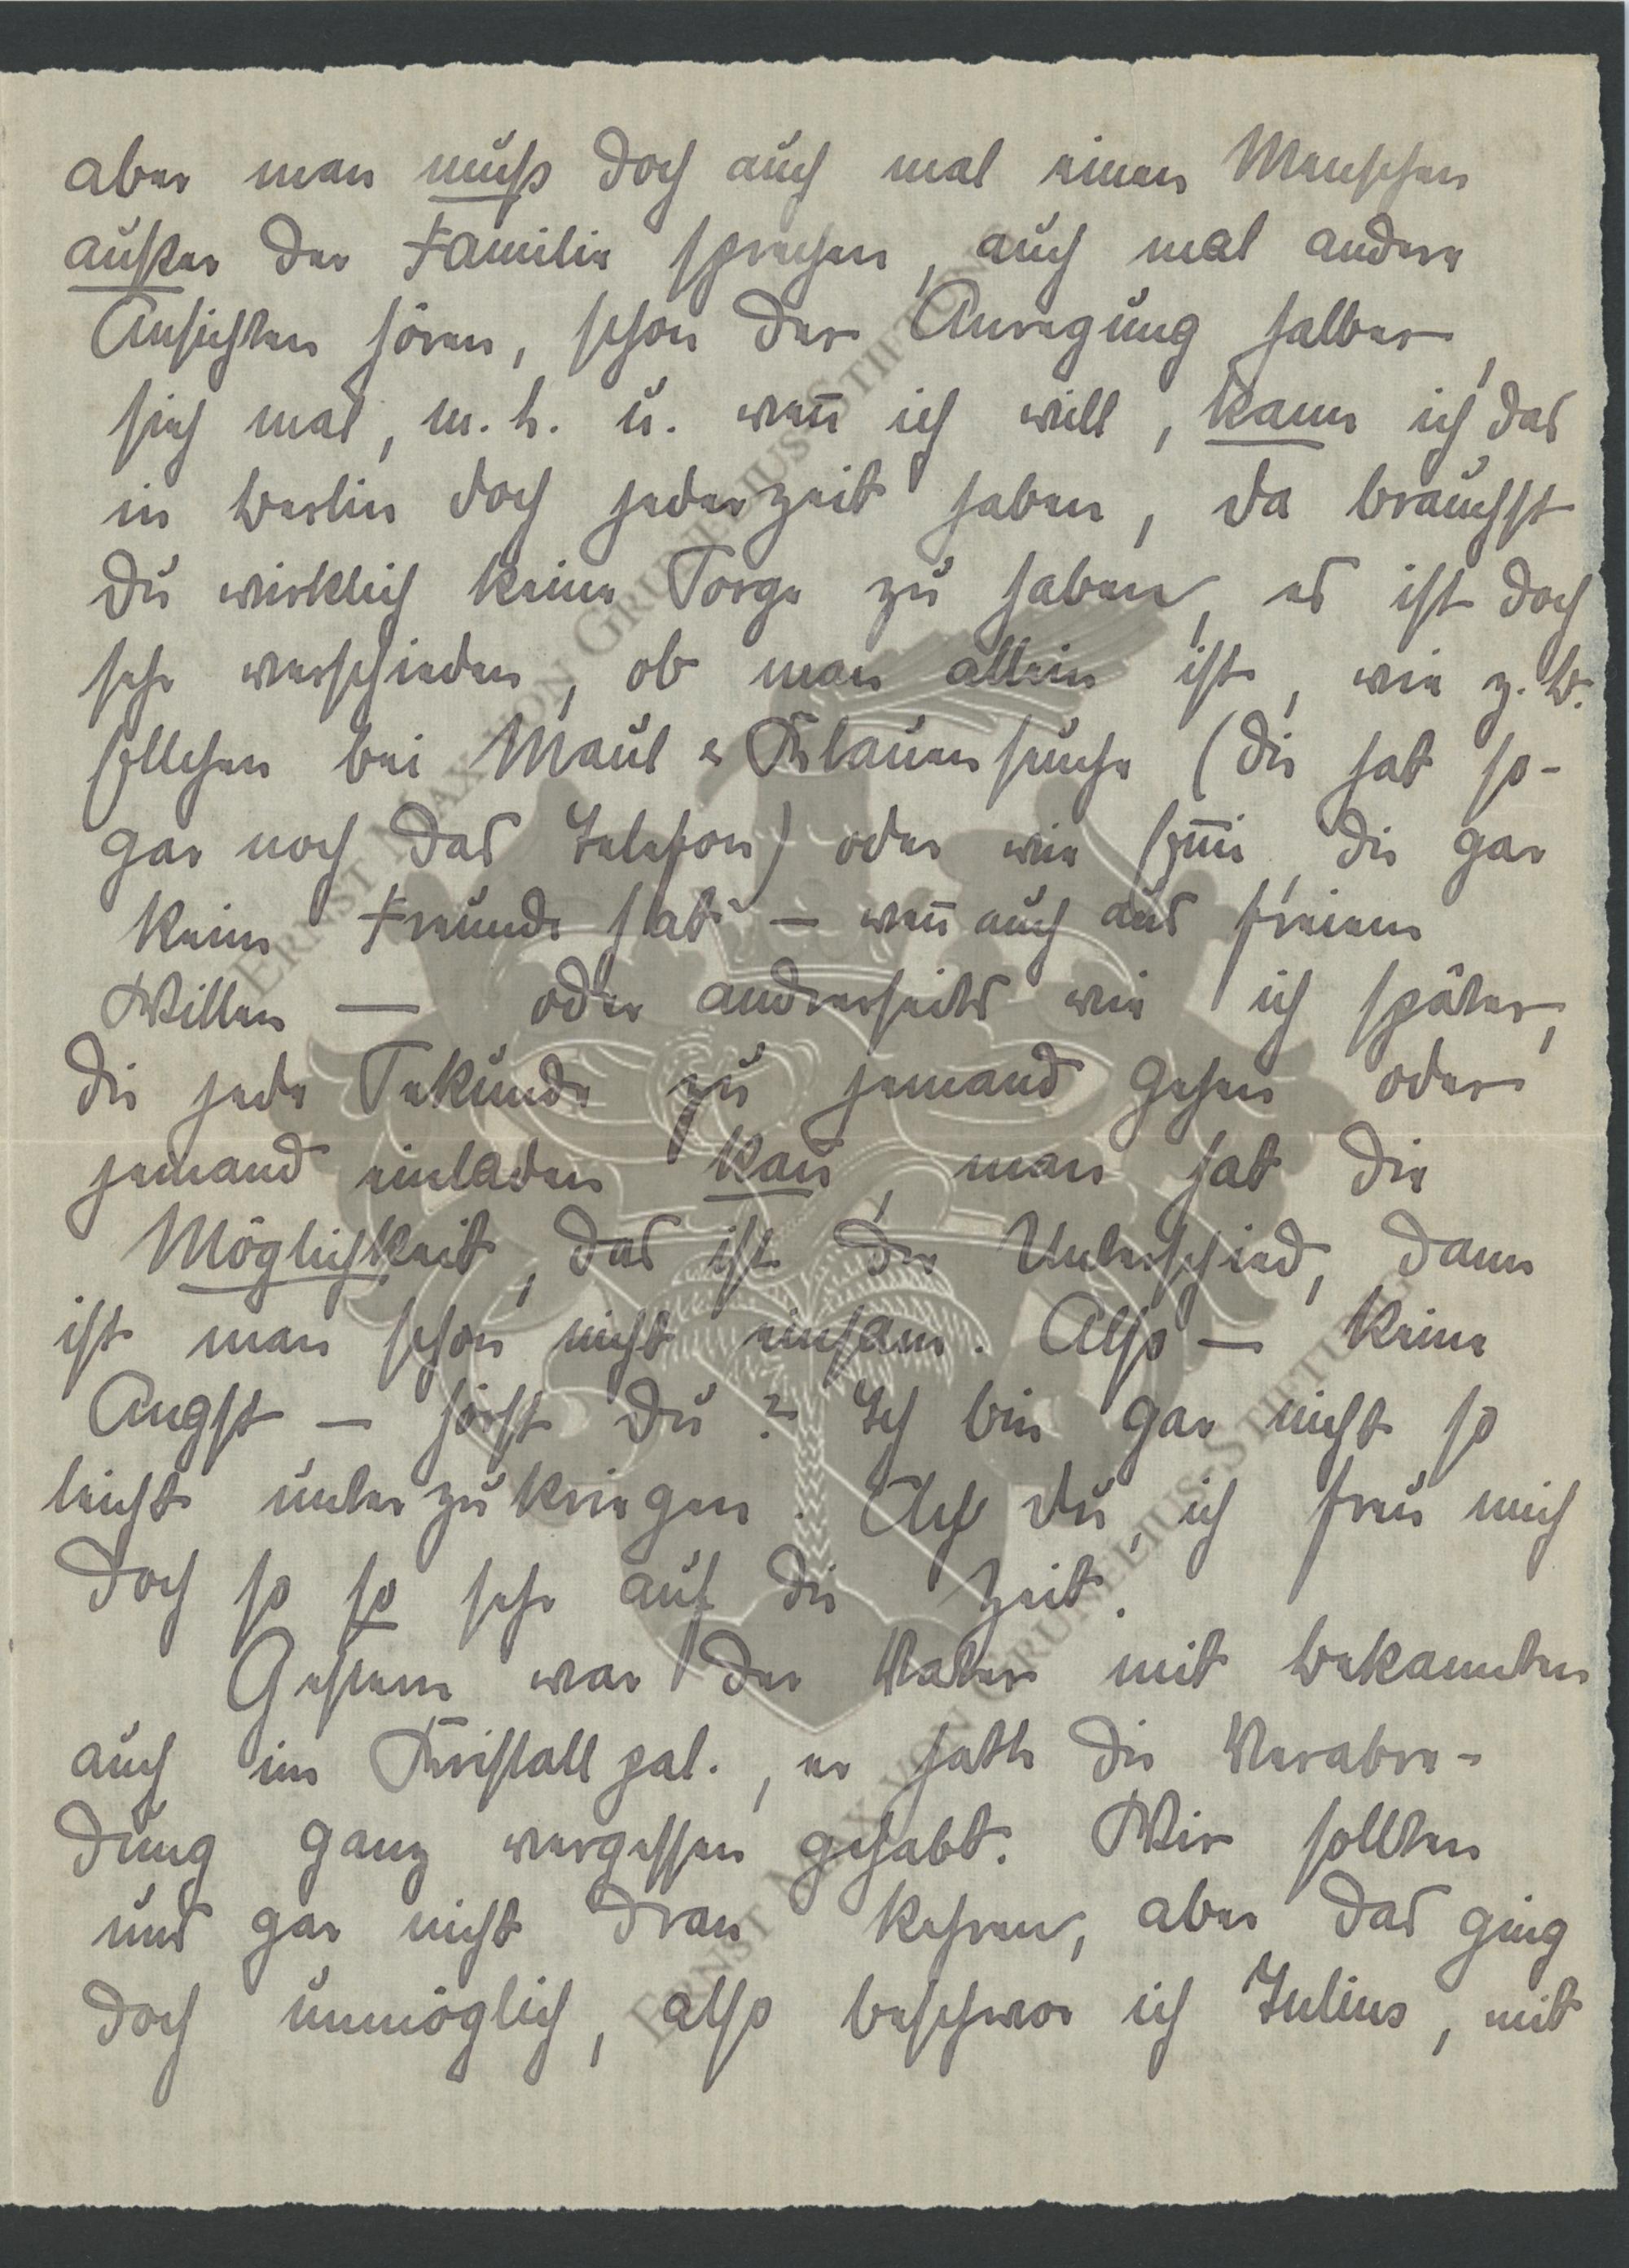 aber man muß doch auch mal einen Menschen
außer der Familie sprechen, auch mal andere
Ansichten hören, schon der Anregung halber,
sieh mal, u. wen̄ ich will, kann ich das
in Berlin doch jederzeit haben, da brauchst
Du wirklich keine Sorge zu haben, es ist doch
sehr verschieden, ob man allein ist, wie z. B.
Ellchen bei Maul & Klauenseuche (die hat so-
gar noch das Telefon) oder wie Em̄i, die gar
keine Freunde hat – wen̄ auch aus freiem
Willen — oder andrerseits wie ich später,
die jede Sekunde zu jemand gehen oder
jemand einladen kan̄, man hat die
Möglichkeit, das ist der Unterschied, dann
ist man schon nicht einsam. Also — keine
Angst — hörst Du? Ich bin gar nicht so
leicht unterzukriegen. Ach Du, ich freu mich
doch so so sehr auf die Zeit.
Gestern war der Vater mit Bekannten
auch im Kristallpal., er hatte die Verabre-
dung ganz vergessen gehabt. Wir sollten
uns gar nicht dran kehren, aber das ging
doch unmöglich, also beschwor ich Julius, mit
ERNST MAX VON GRUNELIUS-STIFTUNG
ERNST MAX VON GRUNELIUS-STIFTUNG